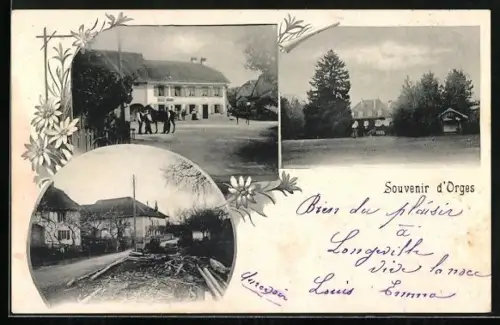 Souvenir d'Orges
Bien du plaisir
à
Longeville
vive la noce
Louis Emma